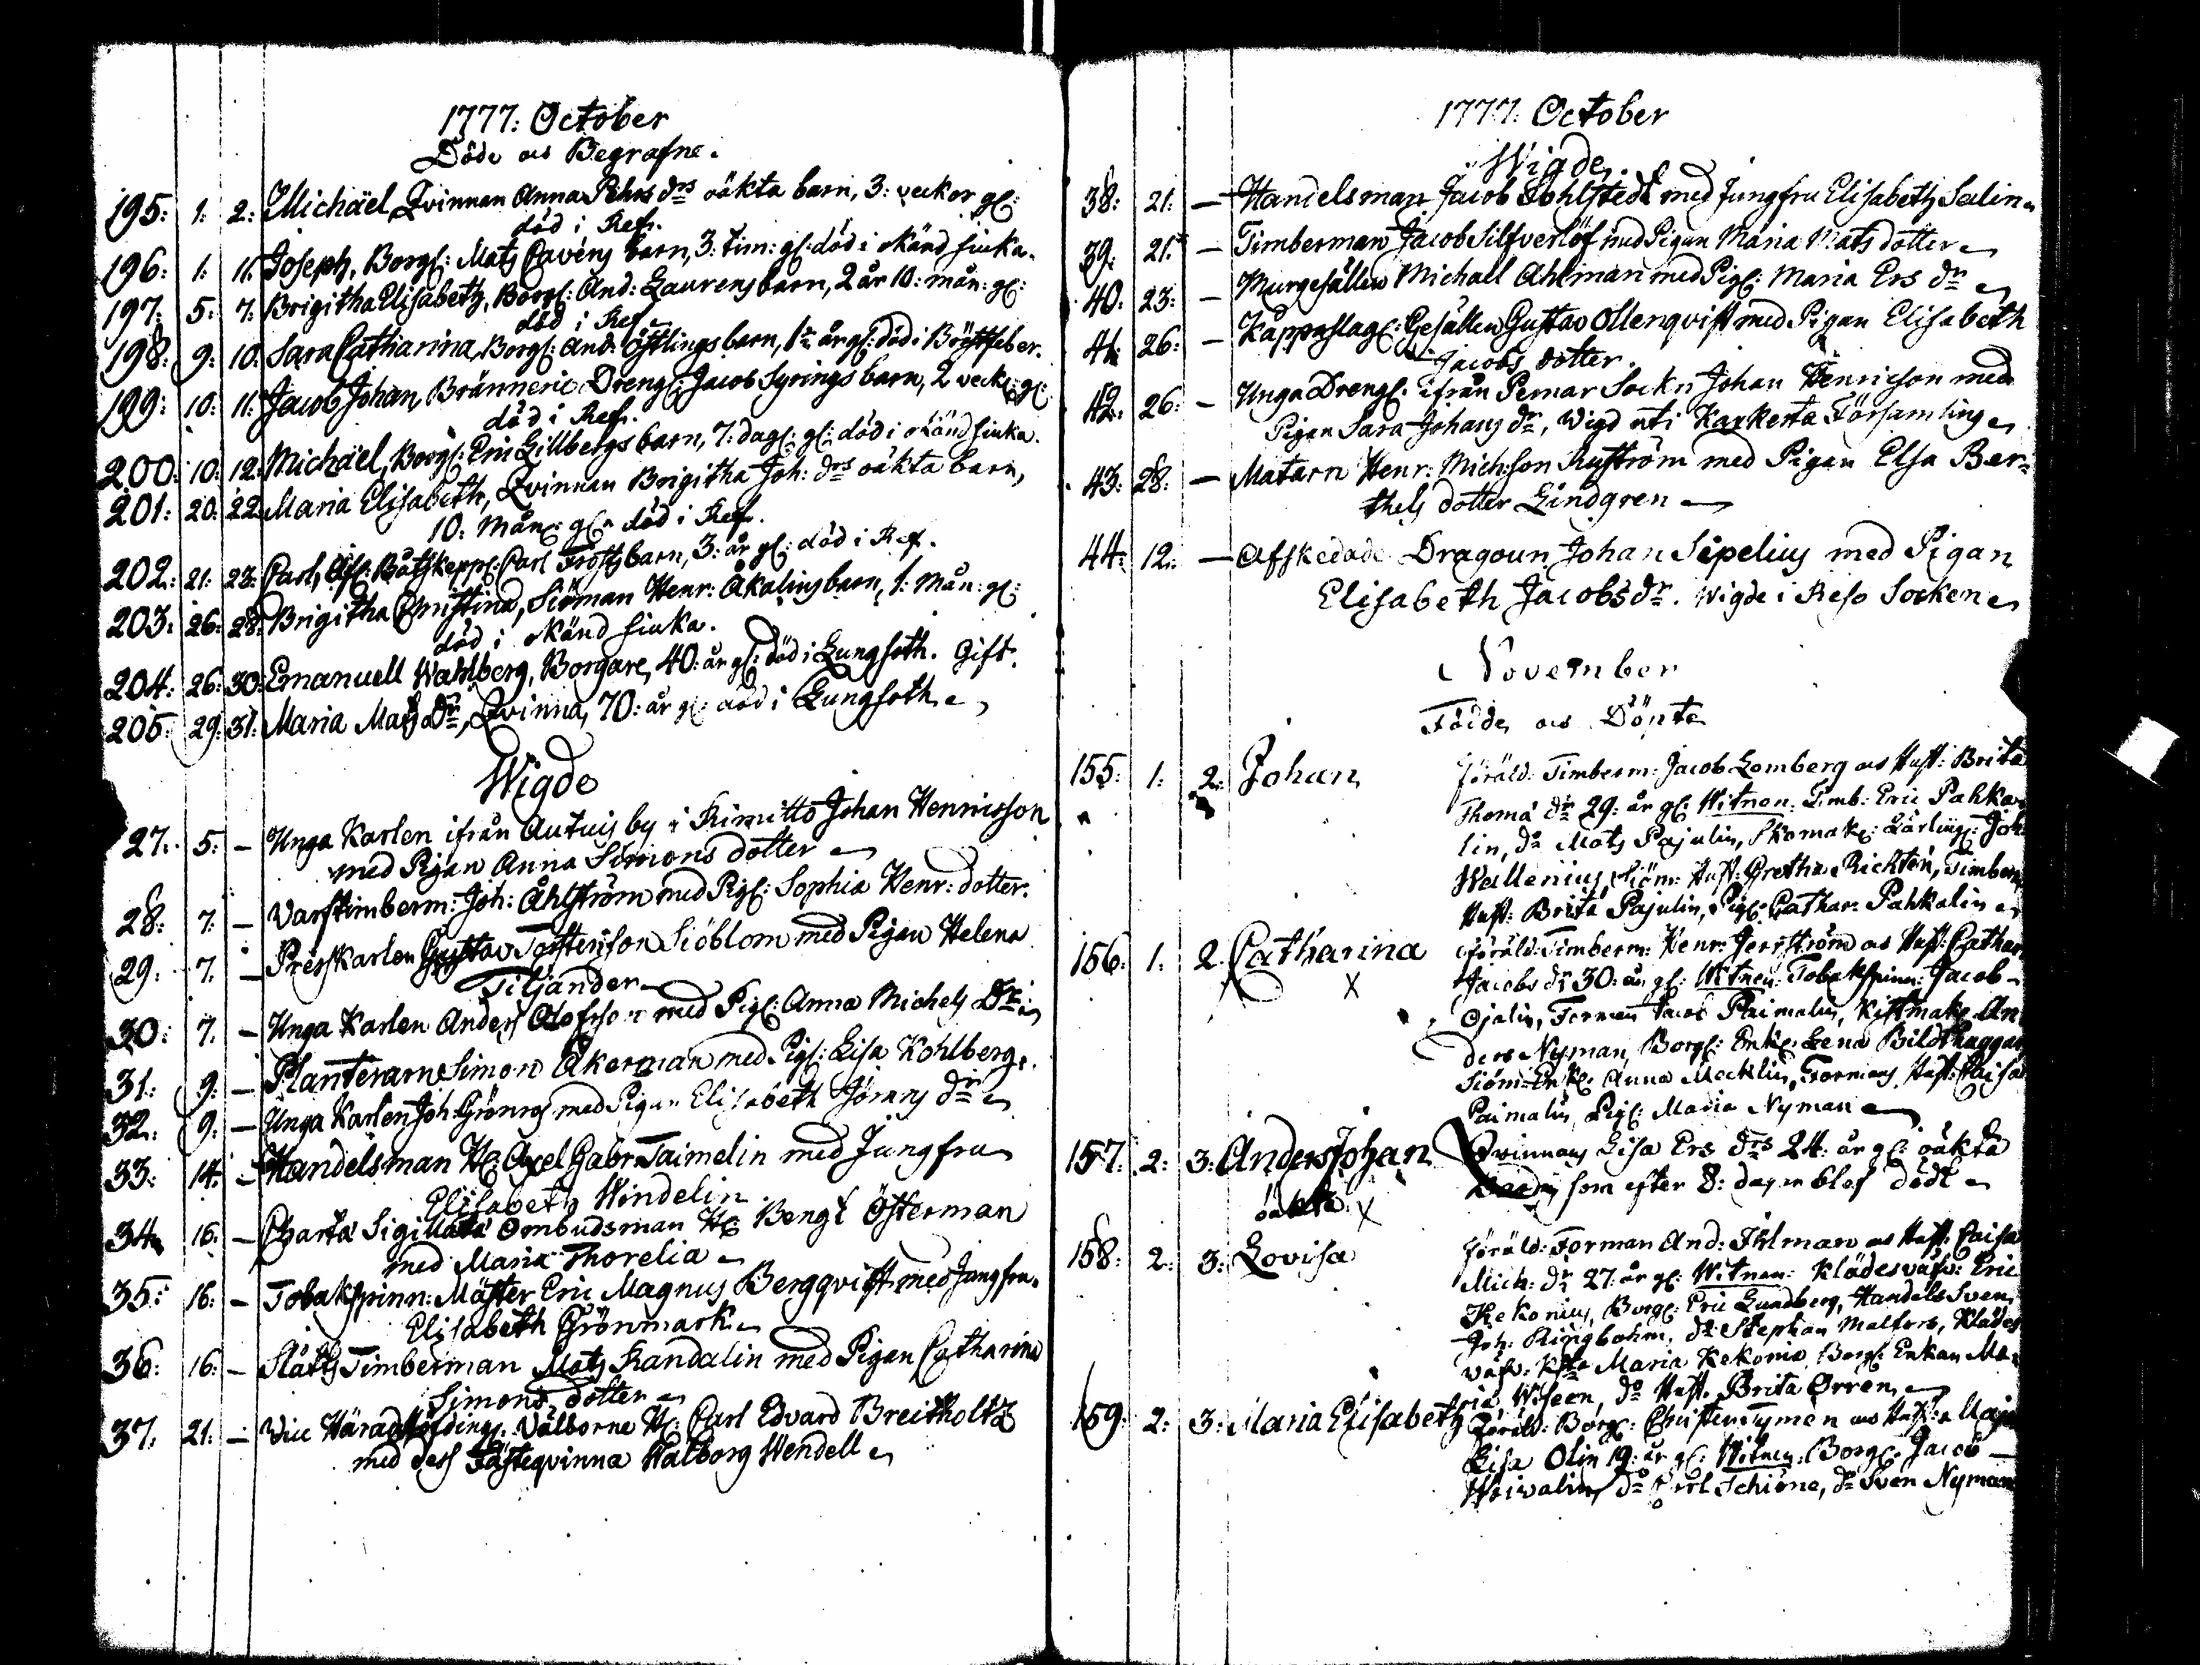 1777: October
Döde och Begrafne.
195: 1: 2: Michäel, Qvinnan Anna Pehrs drs oäkta barn, 3: veckor gl:
död i Ref.
196: 1: 11: Joseph, Borgl: Mats Cavens barn, 3: tim: gl: död i okänd siuka.
197: 5: 7: Brigitha Elisabeth, Borgl: And: Laurens barn, 2 år 10: mån: gl:
död i Ref.
198: 9: 10: Sara Catharina, Borgl: And: Östlings barn, 1½ år gl: död i Bröstfeber.
199: 10: 11: Jacob Johan, Bränneric Drengl: Jacob Syrings barn, 2 veck: gl:
död i Ref.
200: 10: 12: Michäel, Borgl: Eric Gillbergs barn, 7: dagl: gl: död i okänd siuka.
201: 20: 22: Maria Elisabeth, Qvinnan Brigitha Joh: drs oäkta barn,
10: Mån: gl: död i Ref.
202: 21: 23: Carl, Båtskepp: Carl Frosts barn, 3: år gl: död i Ref.
203: 26: 28: Brigitha Christina, Siöman Henr: Åkalins barn, 1: Mån: gl:
död i okänd siuka.
204: 26: 30: Emanuell Wahlberg, Borgare, 40: år gl: död i Lungsoth. Gift.
205: 29: 31: Maria Mats dr, Qvinna, 70: år gl: död i Lungsoth
Wigde
27: 5: – Unga Karlen ifrån Autuis by i Kimitto Johan Henricsson
med Pigan Anna Simons dotter
28: 7: – Varftimberm: Joh: Åhlström med Pigl: Sophia Henr: dotter.
29: 7. – Presskarlen Gustav Torstensson Siöblom med Pigan Helena
Tiljander
30: 7. – Unga Karlen Anders Olofsson med Pigl: Anna Michels Dr
31: 9: – Planteraren Simon Åkerman med Pigl: Lisa Kohlberg.
32: 9: – Unga Karlen Joh: Grönros med Pigan Elisabeth Jörans dr
33: 14: – Handelsman H: Axel Gabr: Taimelin med Jungfru
Elisabeth Windelin
34: 16: – Charta Sigillata Ombudsman H: Bengt Österman
med Maria Thorelia
35: 16: – Tobakspinn: Mäster Eric Magnus Bergqvist med Jungfru
Elisabeth Grönmark
36: 16: – Slåtts Timberman Mats Randalin med Pigan Catharina
Simons dotter
37. 21: – Vice Häradshöfding: Välborne H: Carl Edvard Breitholtz
med dess Fästeqvinna Walborg Wendell
1777: October
Wigde
38: 21: – Handelsman Jacob Kohlstedt med Jungfru Elisabeth Salin
39: 21: – Timberman Jacob Silfverlöf med Pigan Maria Mats dotter
40: 23: – Murgesällen Michall Ahlman med Pigl: Maria Ers dr
41: 26: – Kappaslag: Gesällen Gustav Ollenqvist med Pigan Elisabeth
Jacobs dotter.
42: 26: – Unga Drengl: ifrån Pemar Sockn Johan Henricson med
Pigan Sara Johans dr, Wigd uti Karkerta Församling
43: 28: – Matarn Henr: Mich:son Ryström med Pigan Elsa Ber=
thels dotter Lindgren
44: 12: – Afskedade Dragoun Johan Sipelius med Pigan
Elisabeth Jacobs dr. Wigde i Reso Socken
November
Födde och Döpte
155: 1: 2: Johan Föräld: Timberm: Jacob Lomberg och Hust: Brita
Thoma dr 29: år gl: Witnen: Timb: Eric Pahka
lin, do Mats Pajulin, Skomak: Lärling: Joh:
Wallenius, Siöm: Hust: Gretha Richtén, Timberm:
Hust: Brita Pajulin, Pigl: Cathar: Pahkalin
156: 1: 2. Catharina Föräld: Timberm: Henr: Jernström och Hust: Cathar
X Jacobs dr 30: år gl: Witnen: Tobakspinn: Jacob
Ojalin, Forman Jacob Paimalin, Kistmak: An
ders Nyman, Borgl: Enk: Lena Bildhuggar
Siöm: Enk: Anna Mecklin, Formans Hust: Caisa
Paimalin, Pigl: Maria Nyman
157: 2: 3: Anders Johan Qvinnans Lisa Ers drs 24: år gl: oäkta
oäkta. X som efter 8: dagar blef död
158: 2: 3: Lovisa Föräld: Forman And: Tålman och Hust: Caisa
Mich: dr 27: år gl: Witnen: Klädesväfv: Eric
Kekonius, Borgl: Eric Lundberg, Handels Sven
Joh: Ringbohm, do Stephan Malfors, Klädes
väfv: Maria Kekonia, Borgl: Enkan Ma
ria Wiseen, do Hust. Brita Orren
159: 2: 3: Maria Elisabeth Föräld: Borgl: Christer Tymen och Hust: Maja
Lisa Olin 19: år gl: Witnen: Borgl: Jacob
Woivalin, do Carl Schiöne, do Sven Nyman